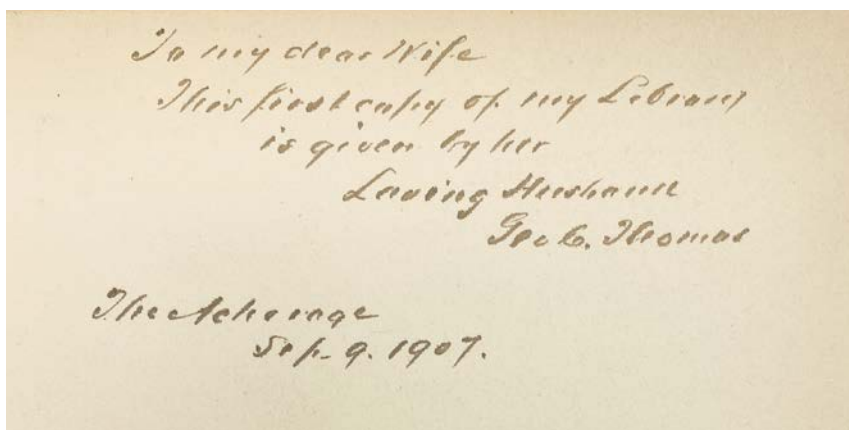 To my dear Wife
This first copy of my Library
is given by her
Loving Husband
Geo C. Thomas
The
Sep. 9. 1907.